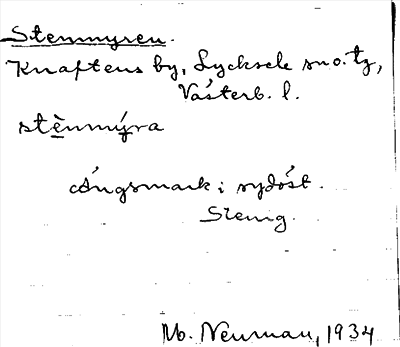 Stenmyren.
Knaftens by, Lycksele sn o. tg,
Västerb. l.
stènmýra
Ängsmark i sydöst.
Stenig.
M. Neuman, 1934